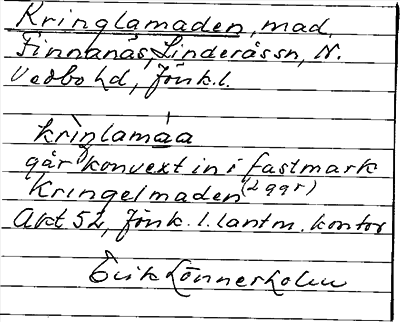 Kringlamaden, mad,
Finnanäs, Linderås sn, N.
Vedbo hd, Jönk. l.
krìŋlamáa
går konvext in i fastmark
Kringelmaden (2 ggr)
Akt 52, Jönk. l. lantm. kontor
Erik Lönnerholm